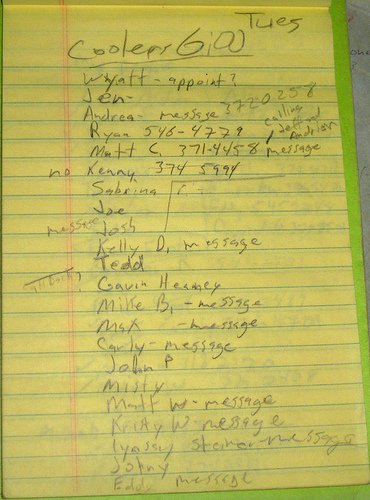 Tues
Coolers 6:00
Wyatt - appoint?
Jen -
Andrea - message 3720258
Ryan 546-4779 calling Jeff and Adrian
Matt C. 371-4458, message
no Kenny 374 5994
Sabrina
Joe
message Josh
Kelly D. message
Tedd
call back Gavin Heaney
Mike B. - message
Max - message
Carly - message
John P
Misty
Matt W - message
Kristy W - message
Lyndsay Steiner - message
Johny
Eddy message